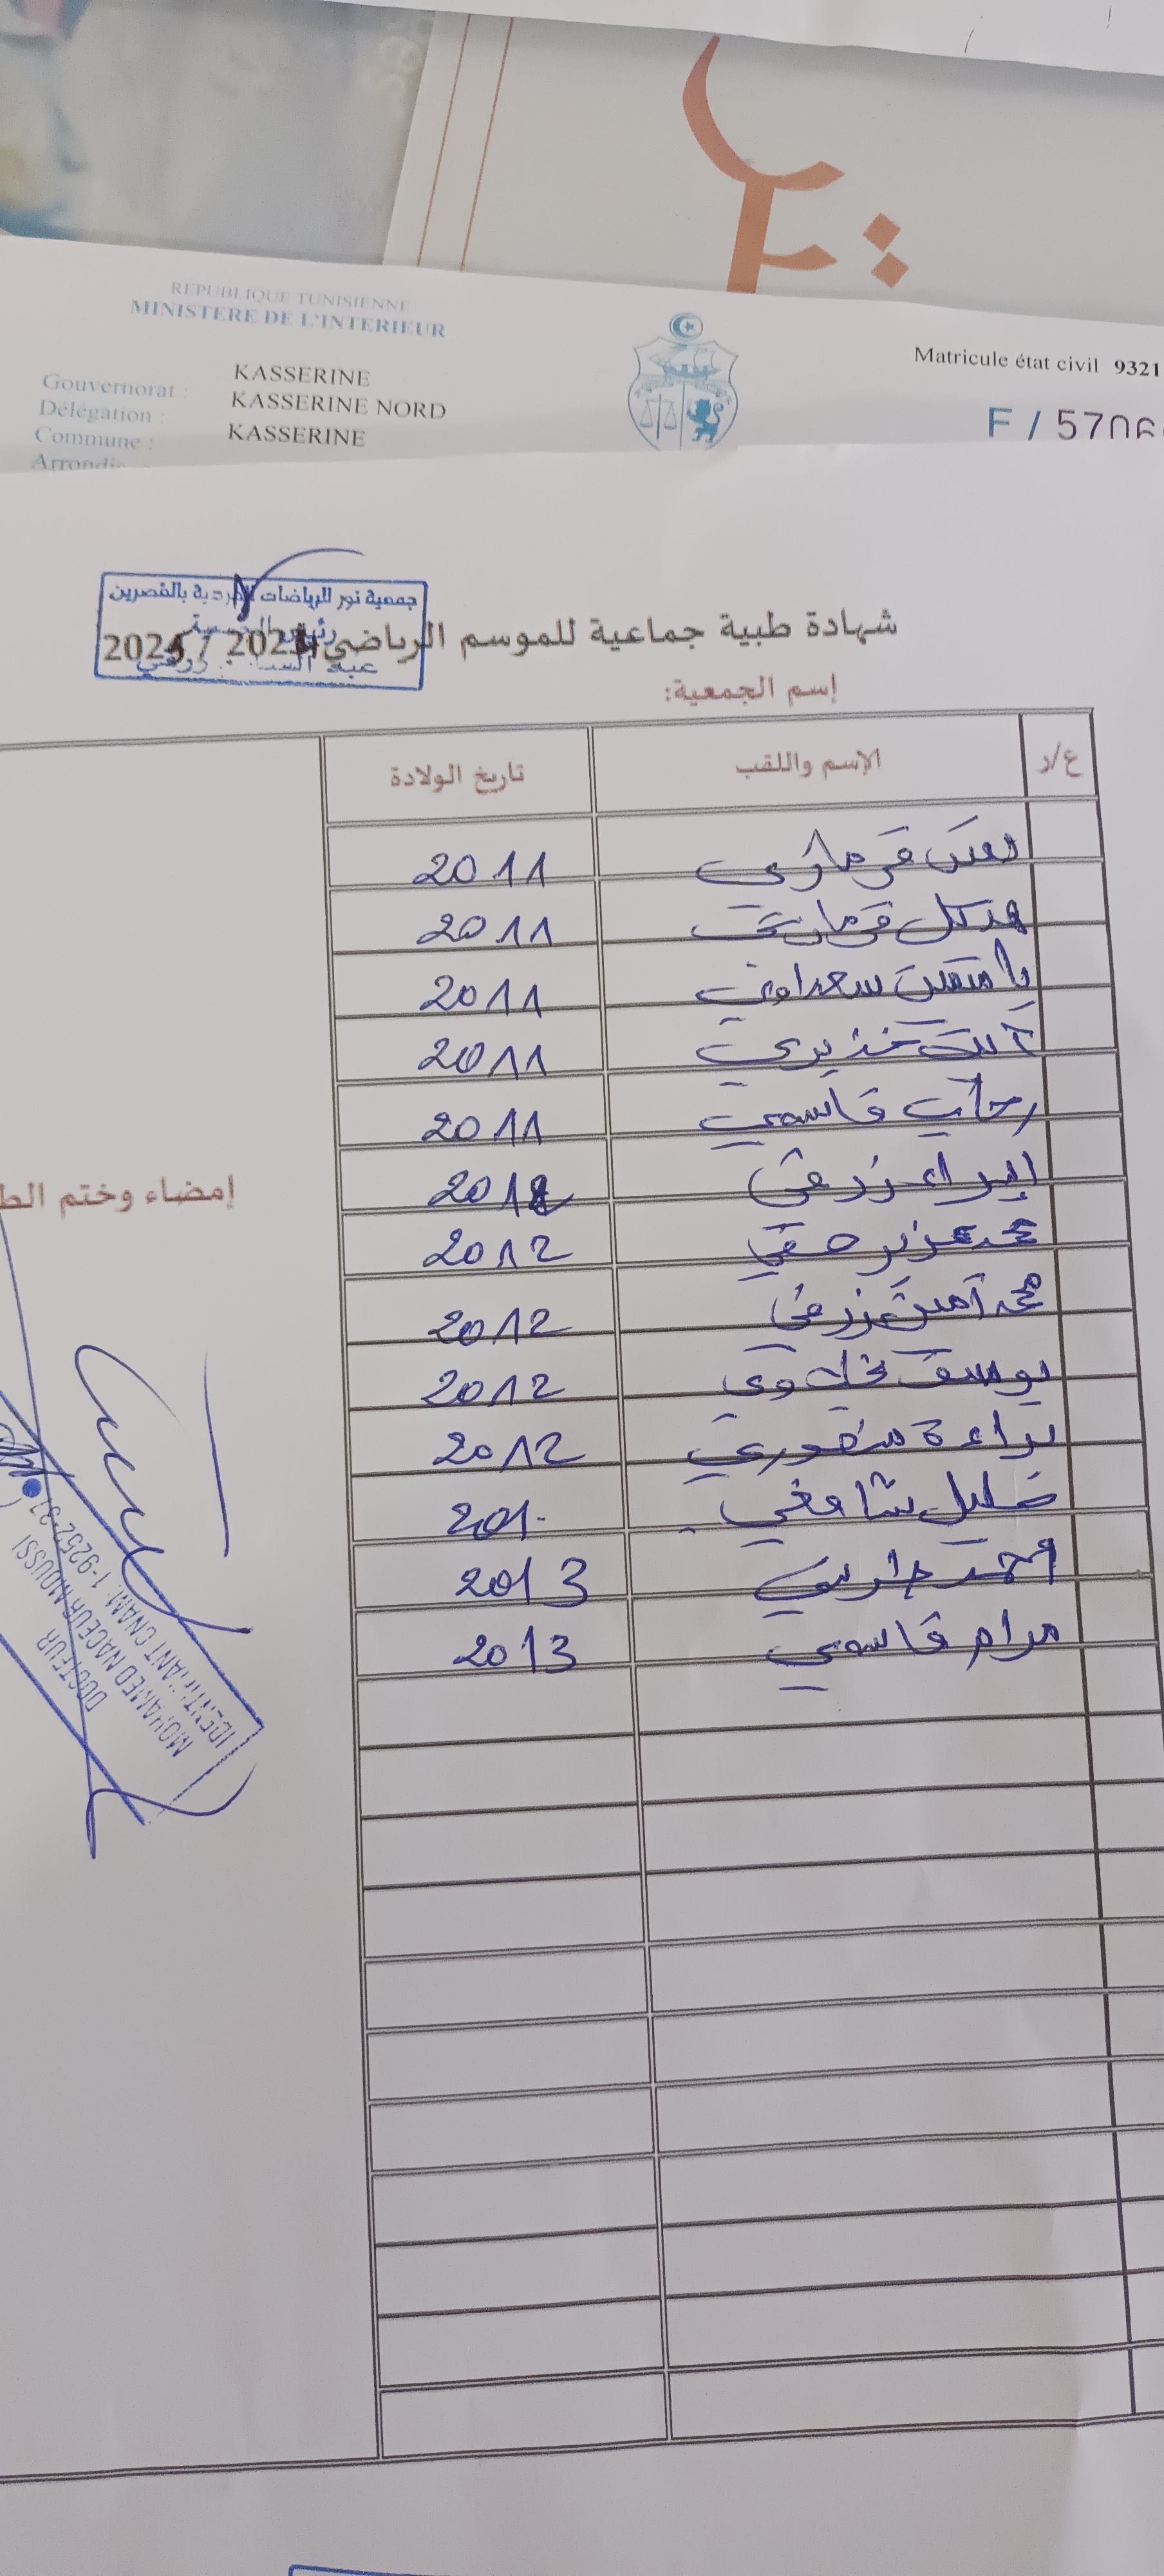 REPUBLIQUE TUNISIENNE
MINISTERE DE L'INTERIEUR
Gouvernorat : KASSERINE
Délégation : KASSERINE NORD
Commune : KASSERINE
Matricule état civil 9321
F / 5706
جمعية نور للرياضات الفردية بالقصرين
شهادة طبية جماعية للموسم الرياضي 2024 / 2025
إسم الجمعية:
ع/ر الإسم واللقب تاريخ الولادة
قرمازي 2011
هيكل قرمازي 2011
ياسمين سعداوي 2011
خذيري 2011
رحاب قاسمي 2011
البراء زرقي 2012
محمد عزيز حقي 2012
محمد أمين زرقي 2012
يوسف خلاوي 2012
براءة منصوري 2012
خليل شافعي 201
أحمد 2013
مرام قاسمي 2013
إمضاء وختم الط
DOCTEUR
MOHAMED NACEUR MOUSSI
IDENTIFIANT CNAM: 1-9252-37